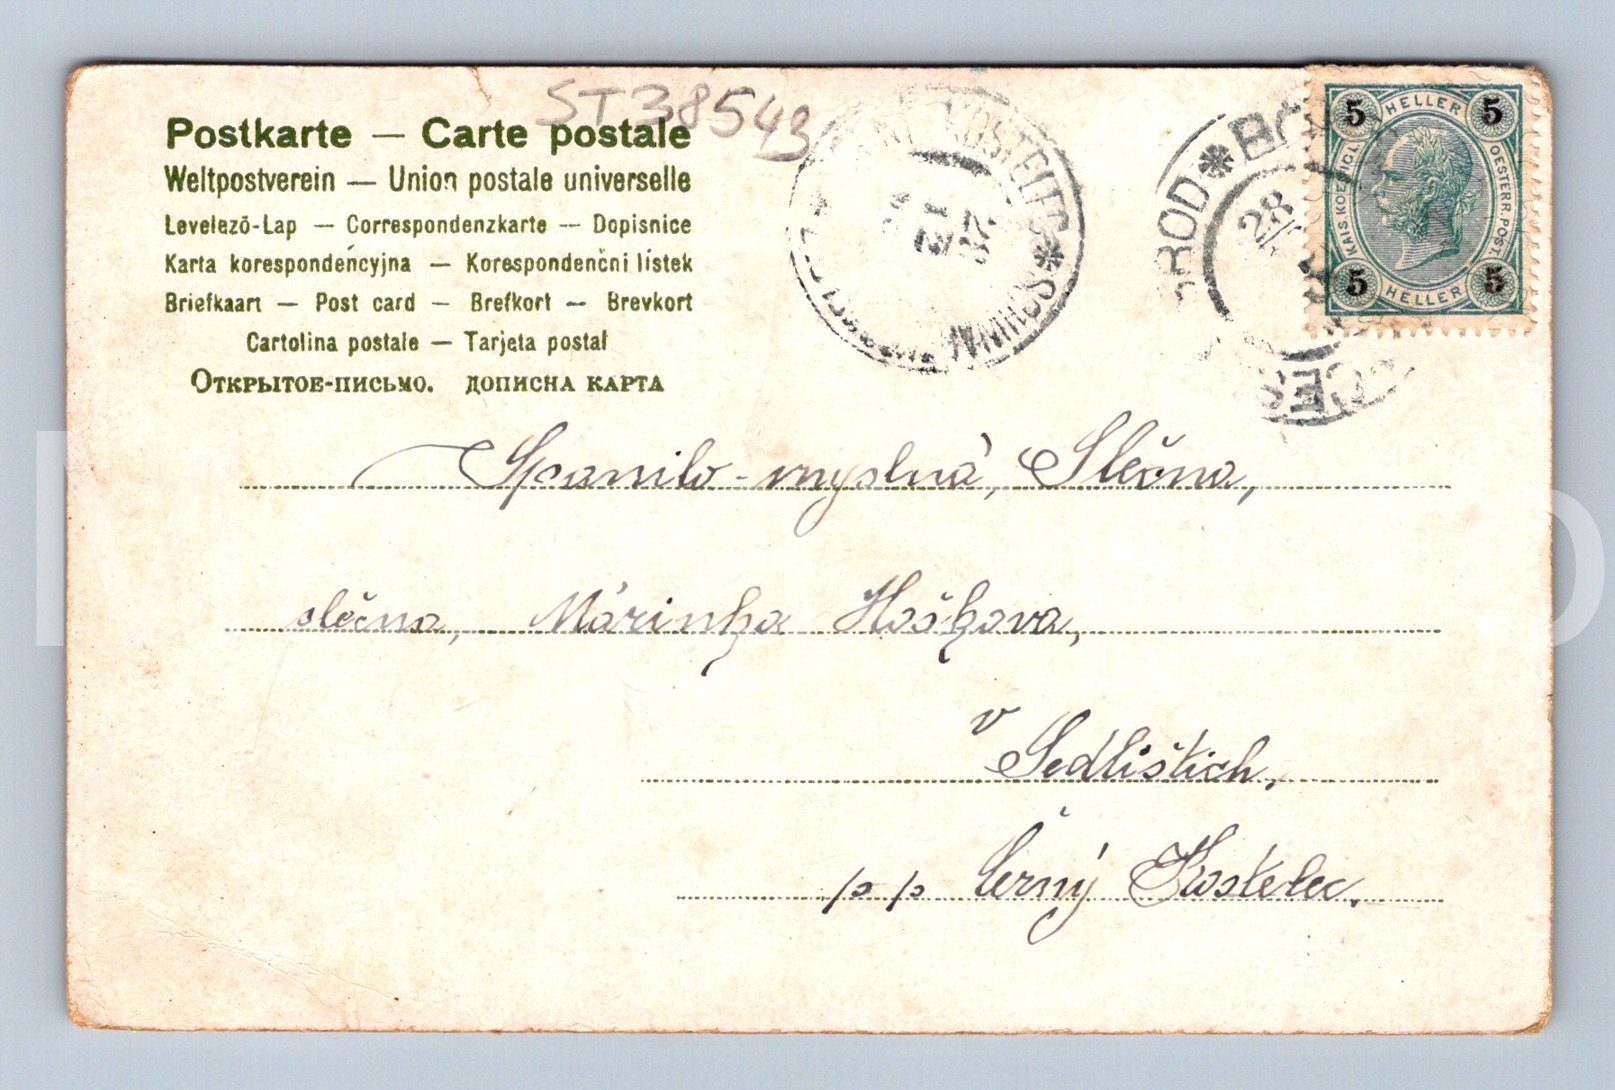 ST38543
Postkarte — Carte postale
Weltpostverein — Union postale universelle
Levelező-Lap — Correspondenzkarte — Dopisnice
Karta korespondencyjna — Korespondenčni listek
Briefkaart — Post card — Brefkort — Brevkort
Cartolina postale — Tarjeta postal
Открытое-письмо. дописна карта
KOSTELEC * SCHWAR
28 12
BROD * BÖ
28
5 HELLER 5
KAIS. KOENIGL. OESTERR. POST
5 HELLER 5
Spanilo-myslná, Slečna,
slečna, Márinka Hoškova,
v
Sedlištích,
p p Černý Kostelec.